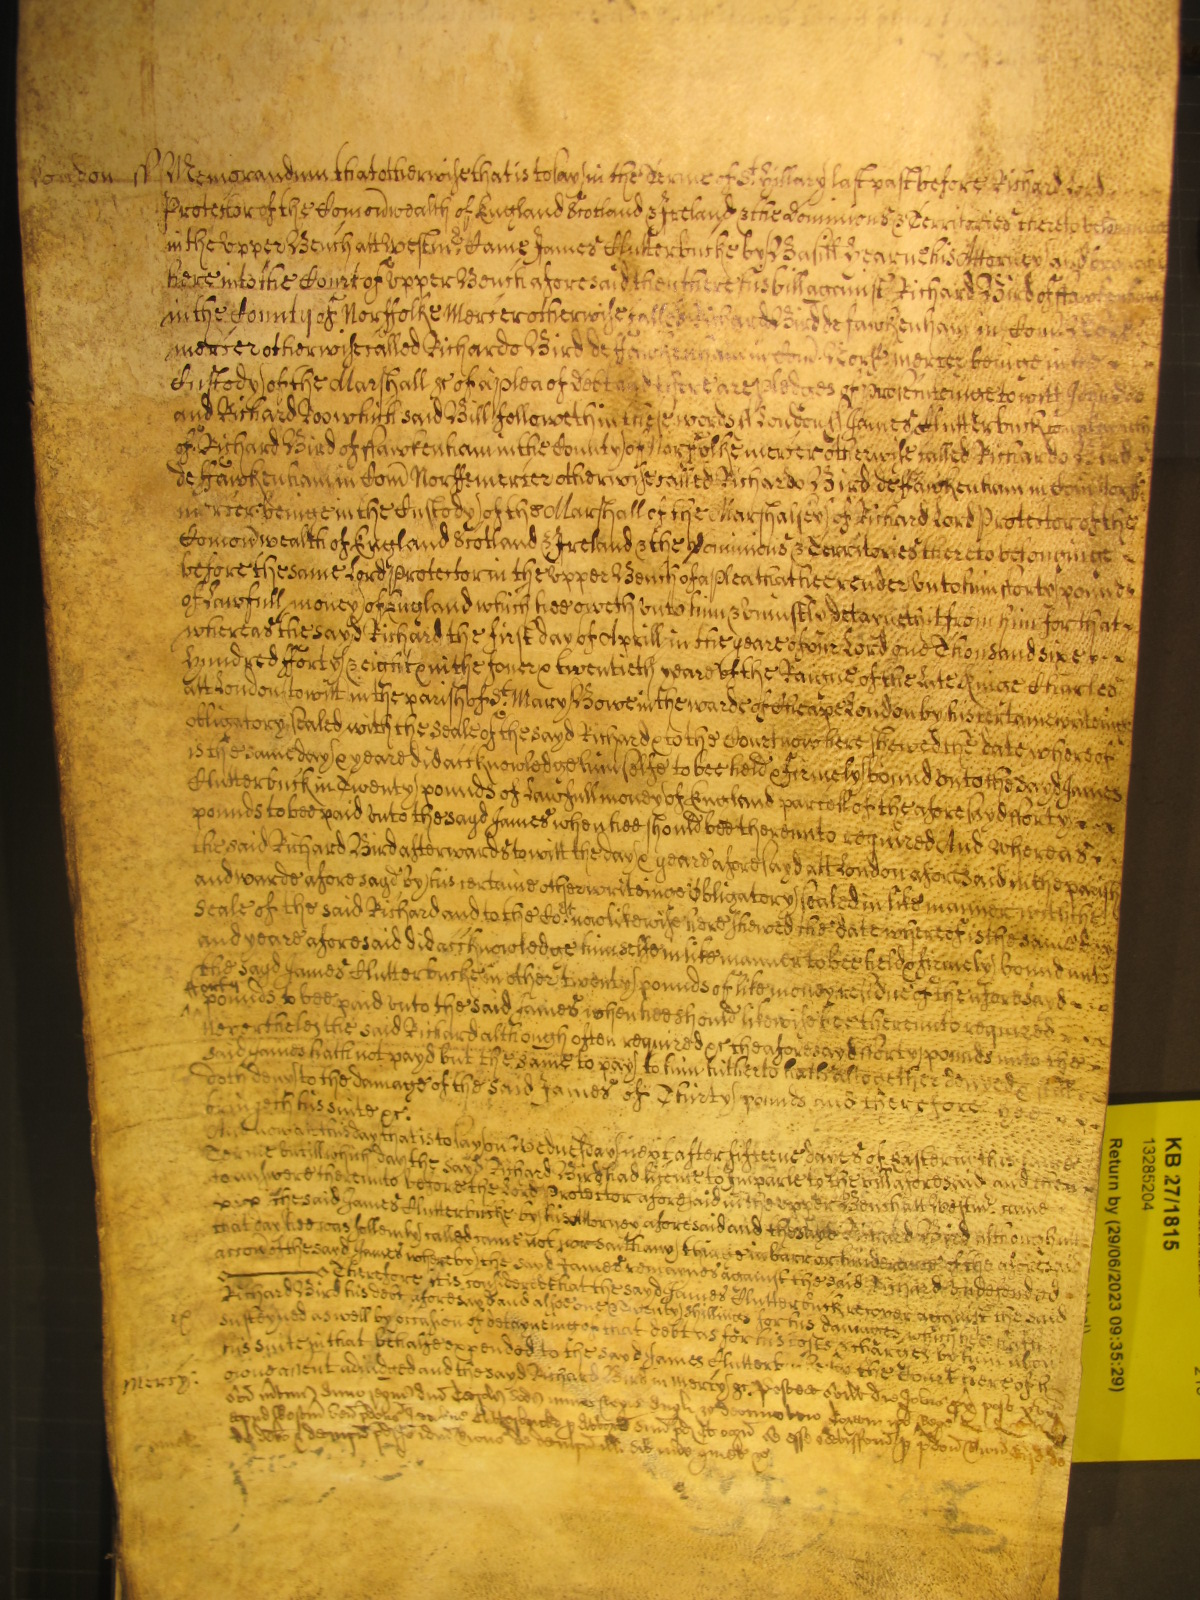 London ss Memorandum that otherwise that is to say in the Terme of St. Hillary last past before Richard Lord
Protector of the Comonwealth of England Scotland & Ireland & the Dominions & Territories thereto belonginge
in the Upper Bench att Westmr. Came James Clutterbucke by Basill Hearne his Attorney and brought
here into the Court of Upper Bench aforesaid then there his bill against Richard Bird of ffawkenham
in the County of Norffolke Mercer otherwise called Richard Bird de fawkenham in Com
mercer otherwise called Richardo Bird de ffawkenham in Com Norff mercer beinge in the
Custody of the Marshall &c of a plea of debt and there are pledges of prosecuteinge to witt John Doe
and Richard Roo which said Bill followeth in these words ss London ss James Clutterbuck complaineth
of Richard Bird of ffawkenham in the County of Norffolke mercer otherwise called Richardo Bird
de ffawkenham in Com Norff mercer otherwise called Richardo Bird de ffawkenham in Com Norff
mercer beinge in the Custody of the Marshall of the Marshalsey of Richard Lord Protector of the
Comonwealth of England Scotland & Ireland & the Dominions & Territories thereto belonginge
before the same Lord Protector in the Upper Bench of a Plea that hee render unto him forty pounds
of lawfull money of England which hee oweth unto him & uniustly detayneth from him for that
whereas the sayd Richard the first day of Aprill in the yeare of our Lord one Thousand sixe
hundred fforty & eight & in the fower & twentieth yeare of the Raigne of the late Kinge Charles
att London to witt in the parish of St. Mary Bowe in the warde of Cheape London by his certaine writeinge
obligatory sealed with the Seale of the sayd Richard & to the Court now here shewed the date whereof
is the same day & yeare did acknowledge him selfe to bee held & firmely bound unto the sayd James
Clutterbuck in Twenty pounds of lawfull money of England parcell of the aforesayd fforty
pounds to bee paid unto the sayd James when hee should bee thereunto required And whereas
the said Richard Bird afterwards to witt the day & yeare aforesayd att London aforesaid in the parish
and warde aforesayd by his certaine other writeinge Obligatory sealed in like manner with the
Seale of the said Richard and to the Cort. now likewise here shewed the date whereof is the same day
and yeare aforesaid did acknowledge himselfe in like manner to bee held & firmely bound unto
the sayd James Clutterbucke in other Twenty pounds of like money residue of the aforesayd
fforty
pounds to bee paid unto the said James when hee should likewise bee thereunto required
Neverthelez the said Richard although often required &c the aforesayd fforty pounds unto the
said James hath not payd but the same to pay to him hitherto hath altogether denyed & still
doth deny to the damage of the said James of Thirty pounds and therefore hee
bringeth his suite &c.
And now at this day that is to say on Wednesday next after fifteene dayes of Easter in this same
Terme untill which day the sayd Richard Bird had licence to imparle to the bill aforesaid and then
to answere thereunto before the Lord Protector aforesaid in the upper Bench att Westmr. came
the said James Clutterbucke by his Attorney aforesaid and the sayd Richard Bird although att
that day hee was sollemly called came not nor saith any thinge in barr or hinderance of the aforesaid
accon of the sayd James whereby the sayd James remaynes against the said Richard undefended
Therefore it is considered that the sayd James Clutterbuck recover against the said
Richard Bird his debt aforesayd and alsoe one & twenty shillings for his damages which hee hath
susteyned as well by occasion of detayneinge of that debt as for his costs & charges by him about
his suite in that behalfe expended to the sayd James Clutterbucke by the Court here of his
owne assent adiudged and the sayd Richard Bird in mercy &c. Postea
Mercy.